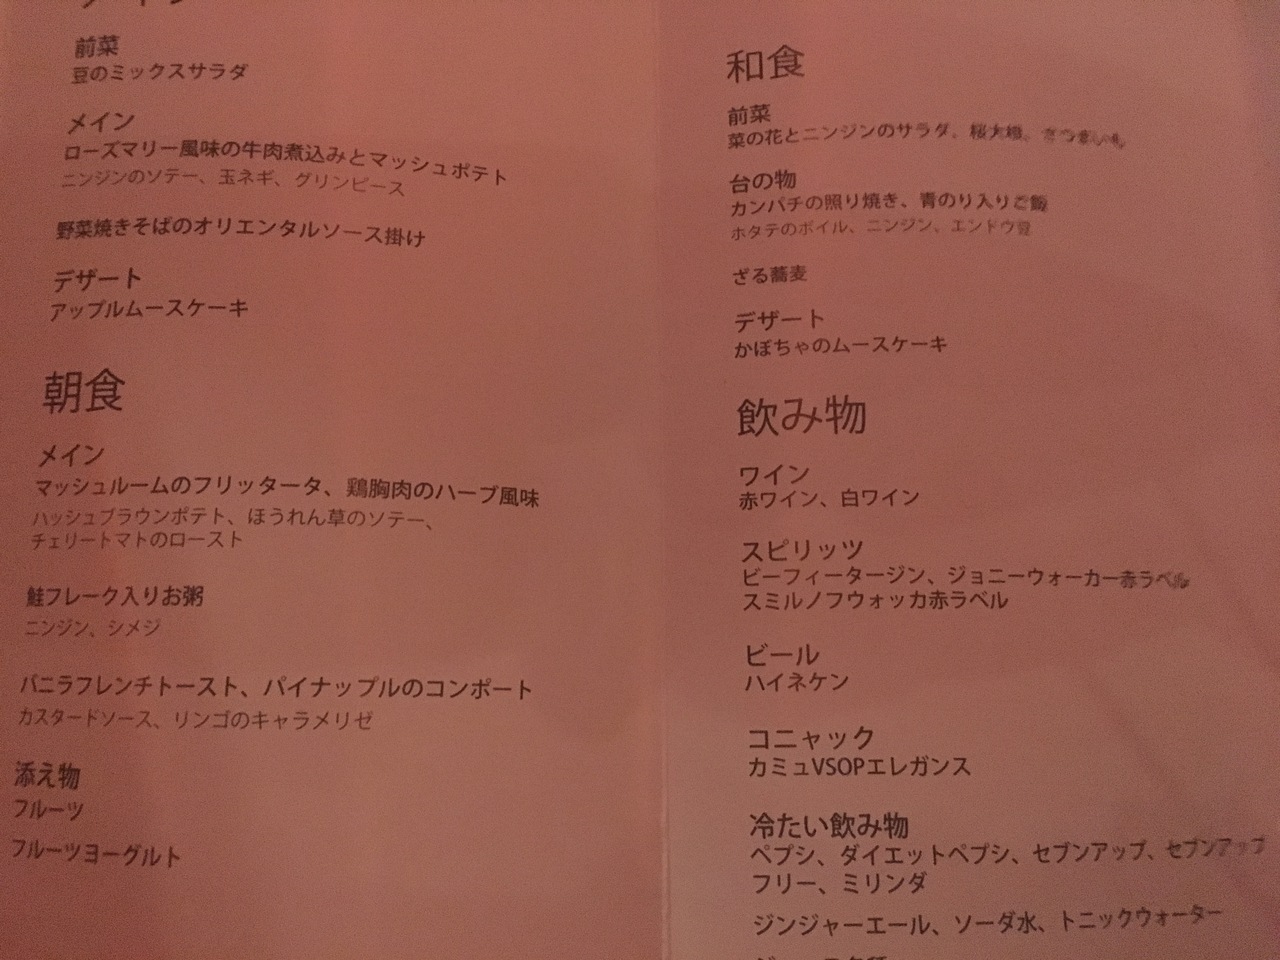 前菜
豆のミックスサラダ
メイン
ローズマリー風味の牛肉煮込みとマッシュポテト
ニンジンのソテー、玉ネギ、グリンピース
野菜焼きそばのオリエンタルソース掛け
デザート
アップルムースケーキ
朝食
メイン
マッシュルームのフリッタータ、鶏胸肉のハーブ風味
ハッシュブラウンポテト、ほうれん草のソテー、
チェリートマトのロースト
鮭フレーク入りお粥
ニンジン、シメジ
バニラフレンチトースト、パイナップルのコンポート
カスタードソース、リンゴのキャラメリゼ
添え物
フルーツ
フルーツヨーグルト
和食
前菜
菜の花とニンジンのサラダ、桜大根、
台の物
カンパチの照り焼き、青のり入りご飯
ホタテのボイル、ニンジン、エンドウ豆
ざる蕎麦
デザート
かぼちゃのムースケーキ
飲み物
ワイン
赤ワイン、白ワイン
スピリッツ
ビーフィータージン、ジョニーウォーカー赤ラベル
スミルノフウォッカ赤ラベル
ビール
ハイネケン
コニャック
カミュVSOPエレガンス
冷たい飲み物
ペプシ、ダイエットペプシ、セブンアップ、セブンアップ
フリー、ミリンダ
ジンジャーエール、ソーダ水、トニックウォーター